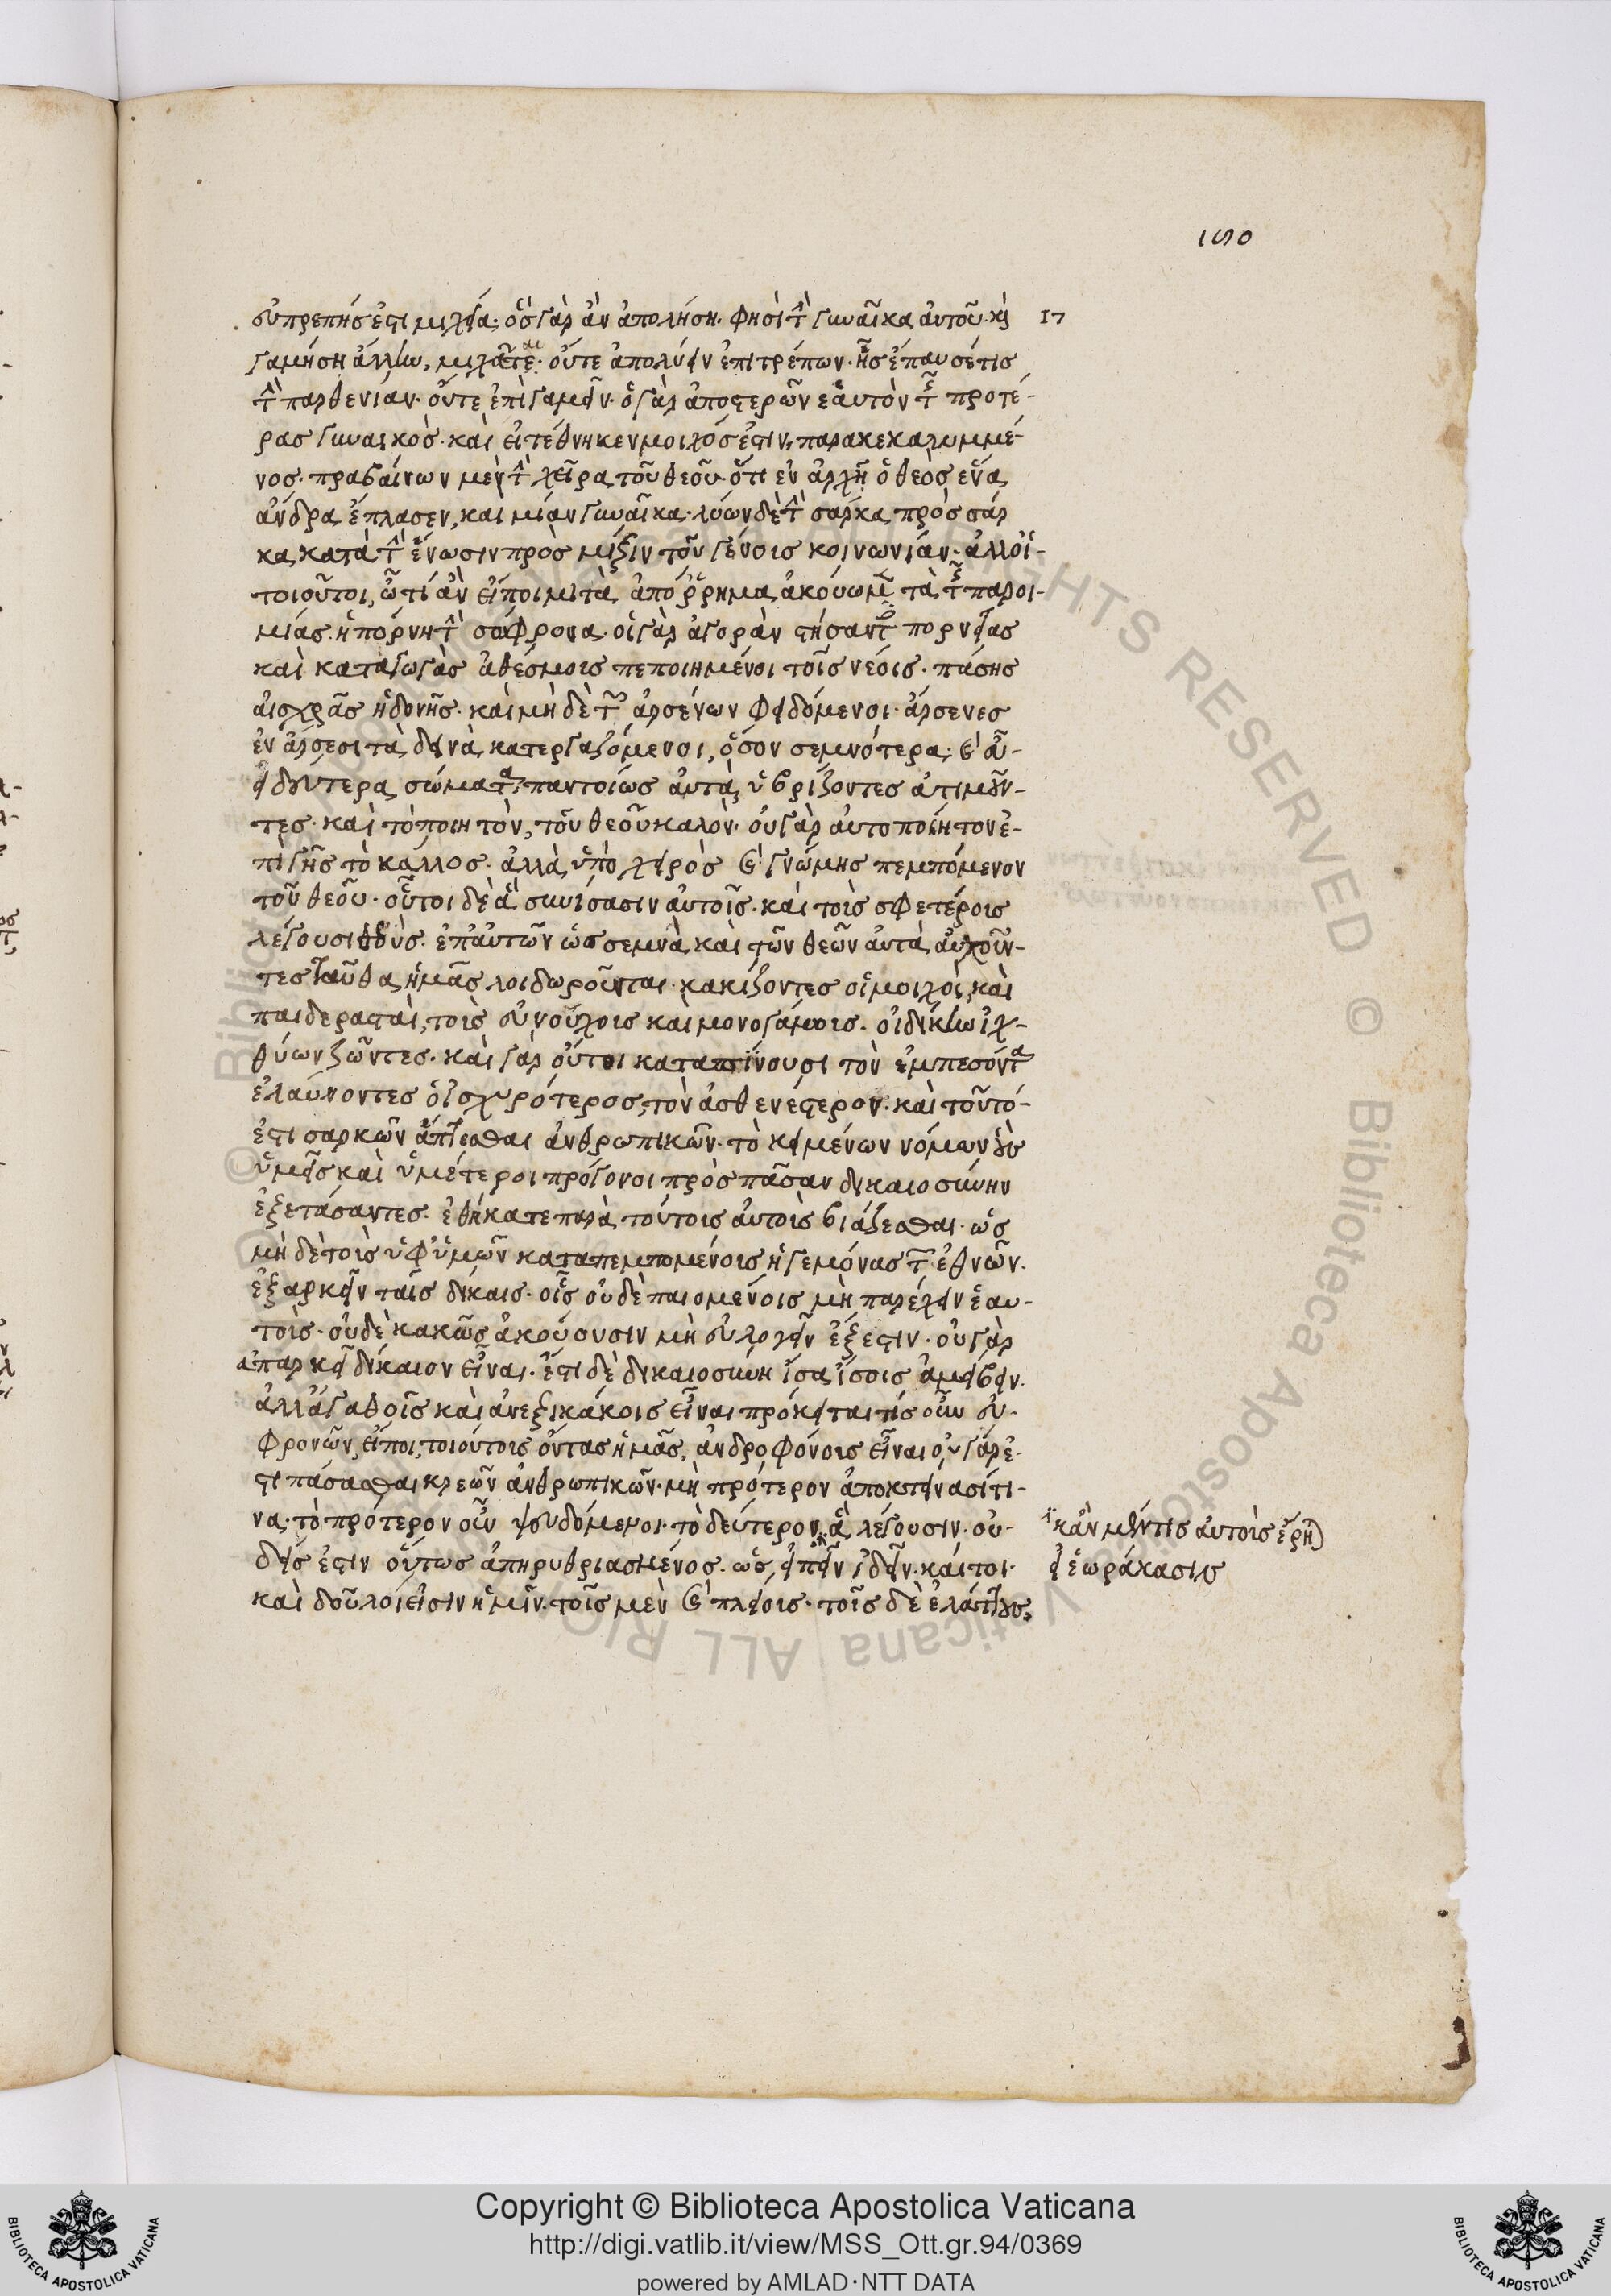 180
εὐπρεπής ἐστι μοιχεία· ὃς γὰρ ἂν ἀπολύση· φησὶ τὴν γυναῖκα αὐτοῦ· καὶ 17
γαμήση ἄλλην, μοιχᾶται· οὔτε ἀπολύειν ἐπιτρέπων· ἧς ἔπαυσέ τις
τὴν παρθενίαν· οὔτε ἐπιγαμεῖν· ὁ γὰρ ἀποστερῶν ἑαυτὸν τῆς προτέ-
ρας γυναικὸς· καὶ εἰ τέθνηκεν μοιχός ἐστιν, παρακεκαλυμμέ-
νος· πραβαίνων μὲν τὴν χεῖρα τοῦ θεοῦ· ὅτι ἐν ἀρχῆ ὁ θεὸς ἕνα
ἄνδρα ἔπλασεν, καὶ μίαν γυναῖκα· λύων δὲ τὴν σάρκα πρὸς σάρ
κα κατὰ τὴν ἕνωσιν πρὸς μίξιν τοῦ γένοις κοινωνίαν· ἀλλ' οἱ
τοιοῦτοι, ὢ τί ἂν εἴποιμι τὰ ἀπόρρημα ἀκούωμεν τὰ τῆς παροι-
μίας· ἡ πόρνη τὴν σώφρονα· οἱ γὰρ ἀγορὰν στήσαντες πορνείας
καὶ καταγωγὰς ἀθέσμοις πεποιημένοι τοῖς νέοις· πάσης
αἰσχρᾶς ἡδονῆς· καὶ μὴ δὲ τῶν ἀρσένων φειδόμενοι· ἄρσενες
ἐν ἄρσεσι τὰ δεινὰ κατεργαζόμενοι, ὅσον σεμνότερα· καὶ εὐ-
ειδέστερα σώματα, παντοίως αὐτὰ ὑβρίζοντες ἀτιμοῦν-
τες· καὶ τὸ ποιητὸν, τοῦ θεοῦ καλὸν· οὐ γὰρ αὐτοποίητον ἐ-
πὶ γῆς τὸ κάλλος· ἀλλὰ ὑπὸ χειρὸς καὶ γνώμης πεμπόμενον
τοῦ θεοῦ· οὗτοι δὲ ἃ συνίσασιν αὐτοῖς· καὶ τοὶς σφετέροις
λέγουσι θεοὺς· ἐπ' αὐτῶν ὡς σεμνὰ καὶ τῶν θεῶν αὐτὰ αὐχοῦν-
τες ταῦθα ἡμᾶς λοιδωροῦνται· κακίζοντες οἱ μοιχοὶ, καὶ
παιδερασταὶ, τοις εὐνούχοις και μονογάμοις· οἱ δίκην ἰχ-
θύων ζῶντες· καὶ γὰρ οὗτοι καταπίνουσι τὸν ἐμπεσόντα
ἐλαύνοντες ὁ ἰσχυρότερος, τὸν ἀσθενέστερον· καὶ τοῦτό-
ἐστι σαρκῶν ἅπτεσθαι ἀνθρωπικῶν· τὸ κειμένων νόμων οὓς
ὑμεῖς καὶ ὑμέτεροι πρόγονοι πρὸς πᾶσαν δικαιοσύνην
ἐξετάσαντες· ἐθήκατε παρὰ τούτοις αὐτοὶς βιάζεσθαι· ὡς
μὴ δὲ τοὶς ὑφ' ὑμῶν καταπεμπομένοις ἡγεμόνας τῶν ἐθνῶν·
ἐξαρκεῖν ταῖς δίκαις· οἷς οὐδὲ παιομένοις μὴ παρέχειν ἑαυ-
τοὶς· οὐδὲ κακῶς ἀκούουσιν μὴ εὐλογεῖν ἔξεστιν· οὐ γὰρ
ἀπαρκεῖ δίκαιον εἶναι· ἔστι δὲ δικαιοσύνη ἴσα ἴσοις ἀμείβειν·
ἀλλ' ἀγαθοῖς καὶ ἀνεξικάκοις εἶναι πρόκειται τίς οὖν εὐ-
φρονῶν, εἴποι, τοιούτοις ὄντας ἡμᾶς, ἀνδροφόνοις εἶναι οὐ γάρ ἐ-
στι πάσασθαι κρεῶν ἀνθρωπικῶν· μὴ πρότερον ἀποκτείνασί τι-
να· τὸ πρότερον οὖν ψευδόμενοι· τὸ δεύτερον ἃ λέγουσιν· οὐ-
δείς ἐστιν οὕτως ἀπηρυθριασμένος· ὡς, εἰπεῖν ἰδεῖν· καίτοι·
καὶ δοῦλοι εἰσιν ἡμῖν· τοῖς μὲν καὶ πλείοις· τοῖς δὲ ἐλάττους,
κἂν μέν τις αὐτοὶς ἔρηται
εἰ ἑωράκασιν
Copyright © Biblioteca Apostolica Vaticana
http://digi.vatlib.it/view/MSS_Ott.gr.94/0369
powered by AMLAD·NTT DATA